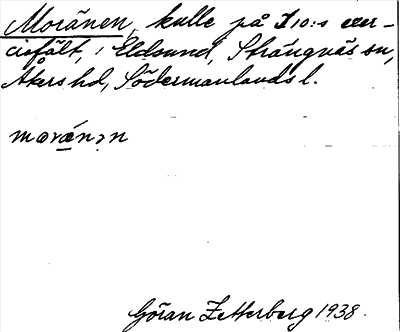 Moränen, kulle på I 10:s exer-
cisfält, i Eldsund, Strängnäs sn,
Åkers hd, Södermanlands l.
morä́nən
Göran Zetterberg 1938.